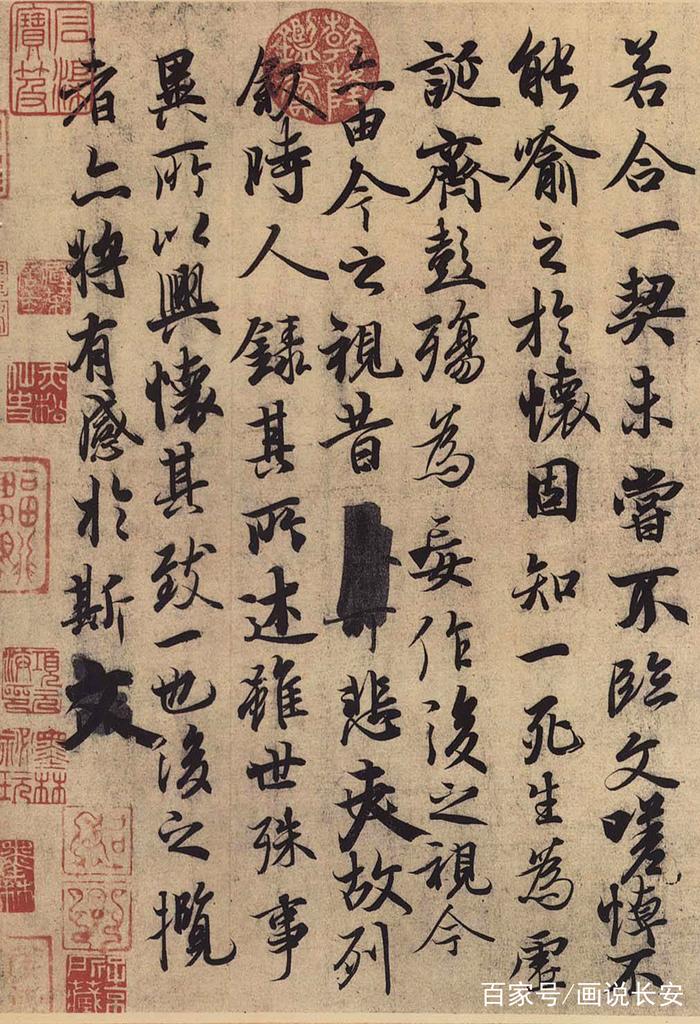 若合一契未嘗不臨文嗟悼不
能喻之於懷固知一死生為虛
誕齊彭殤為妄作後之視今
亦由今之視昔悲夫故列
敘時人錄其所述雖世殊事
異所以興懷其致一也後之攬
者亦將有感於斯文
乾隆鑑賞
墨林秘玩
百家号/画说长安